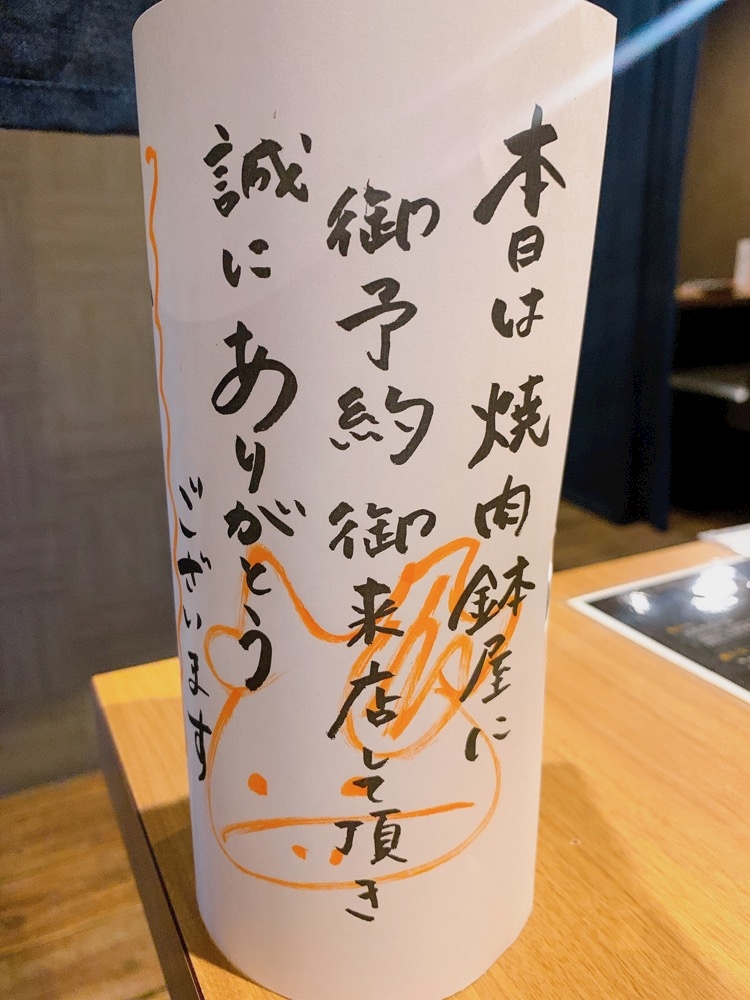 本日は焼肉鉢屋に
御予約御来店して頂き
誠にありがとう
ございます